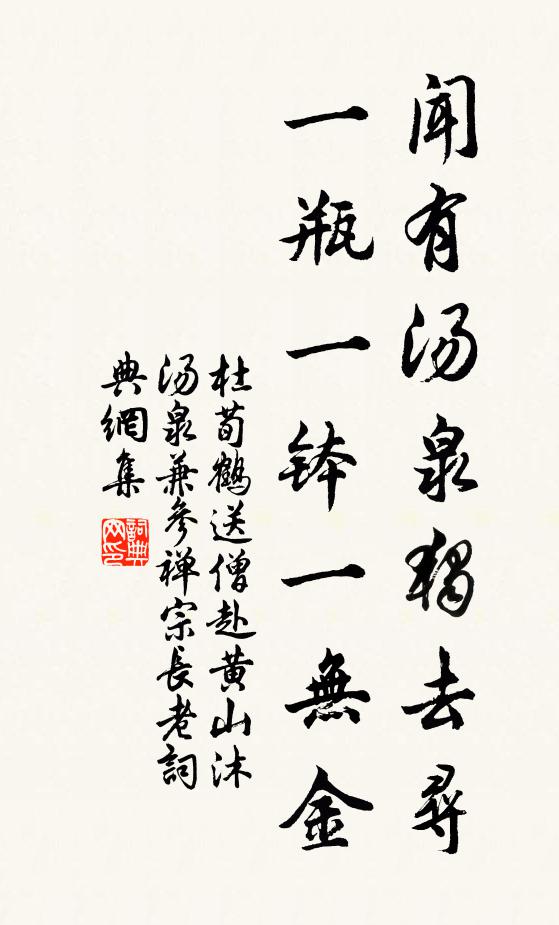 闻有汤泉独去尋
一瓶一钵一無金
杜荀鶴送僧赴黄山沐
汤泉兼参禅宗長老詞
典網集
詞典
网印